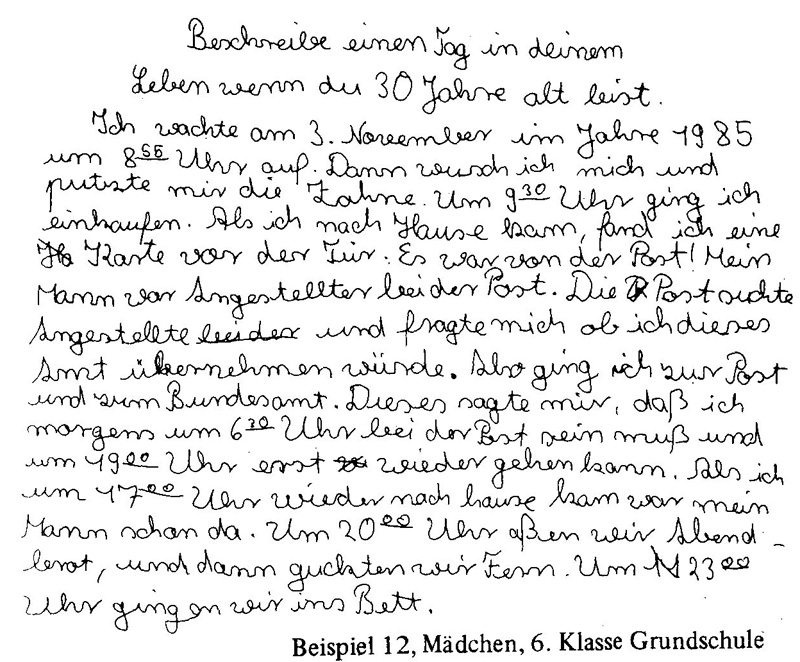 Beschreibe einen Tag in deinem
Leben wenn du 30 Jahre alt bist.
Ich wachte am 3. November im Jahre 1985
um 8 55 Uhr auf. Dann wusch ich mich und
putzte mir die Zähne. Um 9 30 Uhr ging ich
einkaufen. Als ich nach Hause kam, fand ich eine
Karte vor der Tür. Es war von der Post! Mein
Mann war Angestellter bei der Post. Die Post suchte
Angestellte leider und fragte mich ob ich dieses
Amt übernehmen würde. Also ging ich zur Post
und zum Bundesamt. Dieses sagte mir, daß ich
morgens um 6 30 Uhr bei der Post sein muß und
um 19 00 Uhr erst wieder gehen kann. Als ich
um 17 00 Uhr wieder nach hause kam war mein
Mann schon da. Um 20 00 Uhr aßen wir Abend-
brot, und dann guckten wir Fern. Um 23 00
Uhr gingen wir ins Bett.
Beispiel 12, Mädchen, 6. Klasse Grundschule